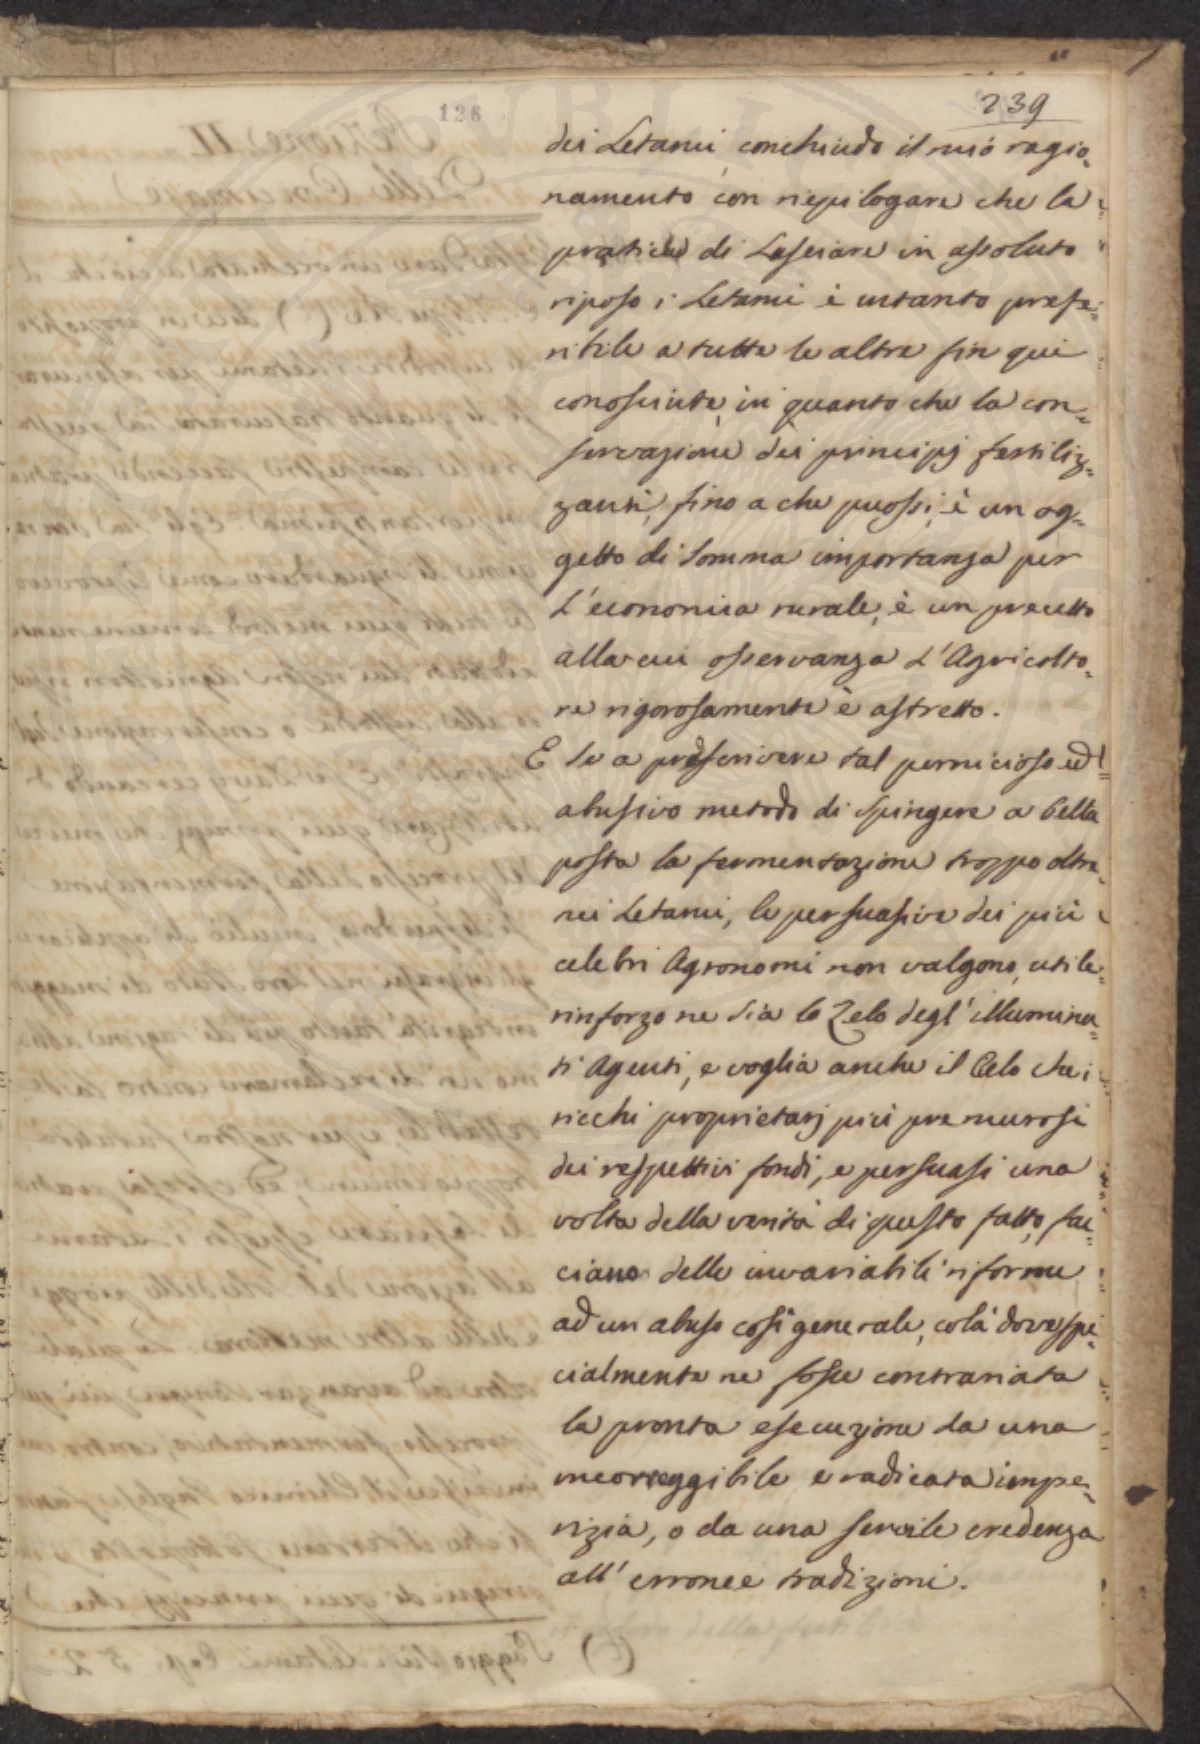 126
239
dei Letami conchiudo il mio ragio-
namento con riepilogare che la
pratica di Lasciare in assoluto
riposo i Letami è intanto prefe-
ribile a tutte le altre fin qui
conosciute, in quanto che la con-
servazione dei principj fertiliz-
zanti, fino a che puossi, è un og-
getto di Somma importanza per
L'economia rurale, è un precetto
alla cui osservanza L'Agricolto-
re rigorosamente è astretto.
E Se a proscrivere tal pernicioso ed
abusivo metodo di Spingere a bella
posta la fermentazione troppo oltre
nei Letami, le persuasive dei più
celebri Agronomi non valgono, utile
rinforzo ne sia lo Zelo degl'illumina-
ti Agenti, e voglia anche il Cielo che i
ricchi proprietarj più premurosi
dei respettivi fondi, e persuasi una
volta della verità di questo fatto, fac-
ciano delle invariabili riforme
ad un abuso così generale, colà dove spe-
cialmente ne fosse contrariata
la pronta esecuzione da una
incorreggibile e radicata impe-
rizia, o da una servile credenza
all'erronee tradizioni.